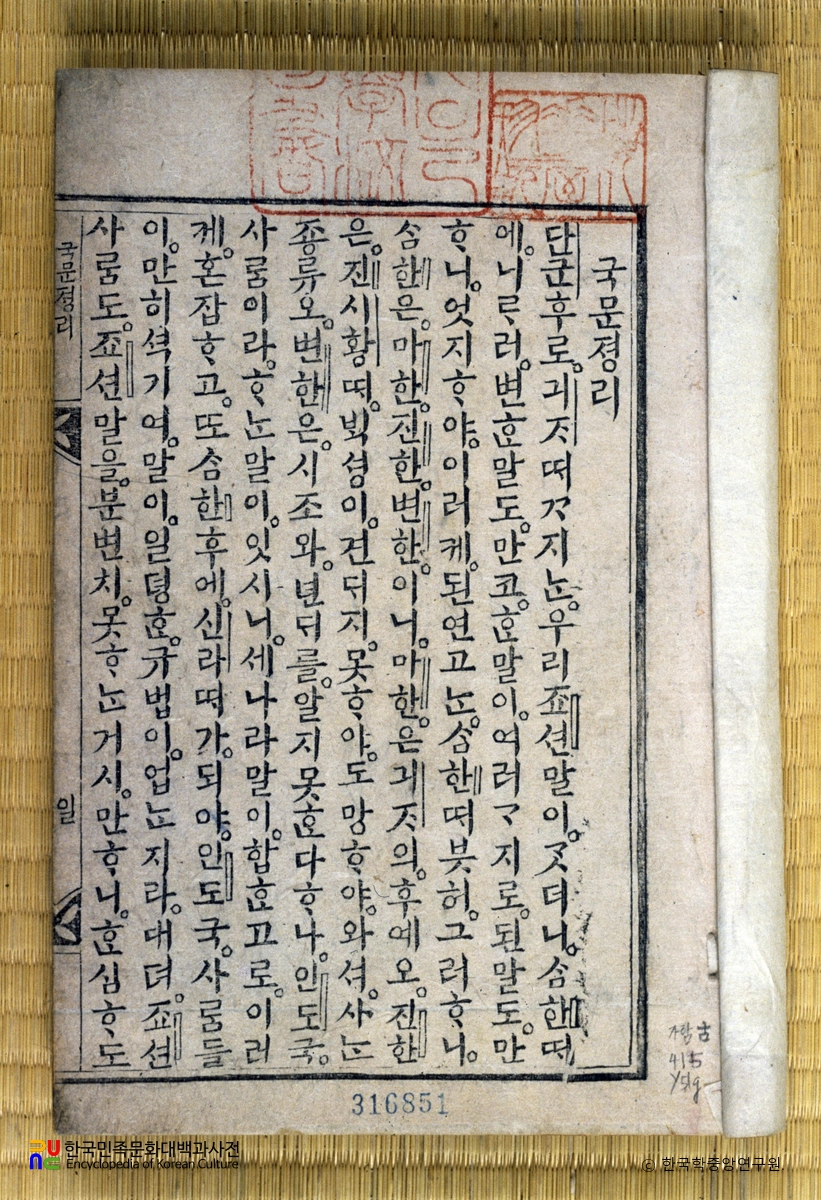 국문졍리
단군후로。긔ᄌᆞᄯᅢᄭᆞ지ᄂᆞᆫ。우리죠션말이。ᄀᆞᆺ더니。ᄉᆞᆷ한ᄯᅢ
에。니ᄅᆞ러。변ᄒᆞᆫ말도。만코。ᄒᆞᆫ말이。여러ᄀᆞ지로。된말도。만
ᄒᆞ니。엇지ᄒᆞ야。이러케。된연고ᄂᆞᆫ。ᄉᆞᆷ한ᄯᅢ븟허。그러ᄒᆞ니。
ᄉᆞᆷ한은。마한。진한。변한。이니。마한。은긔ᄌᆞ의。후예오。진한
은。진시황ᄯᅢ。ᄇᆡᆨ셩이。견ᄃᆡ지。못ᄒᆞ야。도망ᄒᆞ야。와셔。사ᄂᆞᆫ
죵류오。변한은。시조와。년ᄃᆡ를。알지못ᄒᆞᆫ다ᄒᆞ나。인도국。
사ᄅᆞᆷ이라。ᄒᆞᄂᆞᆫ말이。잇시니。세나라말이。합ᄒᆞᆫ고로。이러
케。혼잡ᄒᆞ고。ᄯᅩᄉᆞᆷ한후에。신라ᄯᅢ가。되야。인도국。사ᄅᆞᆷ들
이。만히셕기여。말이。일뎡ᄒᆞᆫ。규법이。업ᄂᆞᆫ지라。대뎌。죠션
사ᄅᆞᆷ도。죠션말을。분변치。못ᄒᆞᄂᆞᆫ거시。만ᄒᆞ니。ᄒᆞᆫ심ᄒᆞ도
국문졍리
일
316851
한국민족문화대백과사전
Encyclopedia of Korean Culture
© 한국학중앙연구원